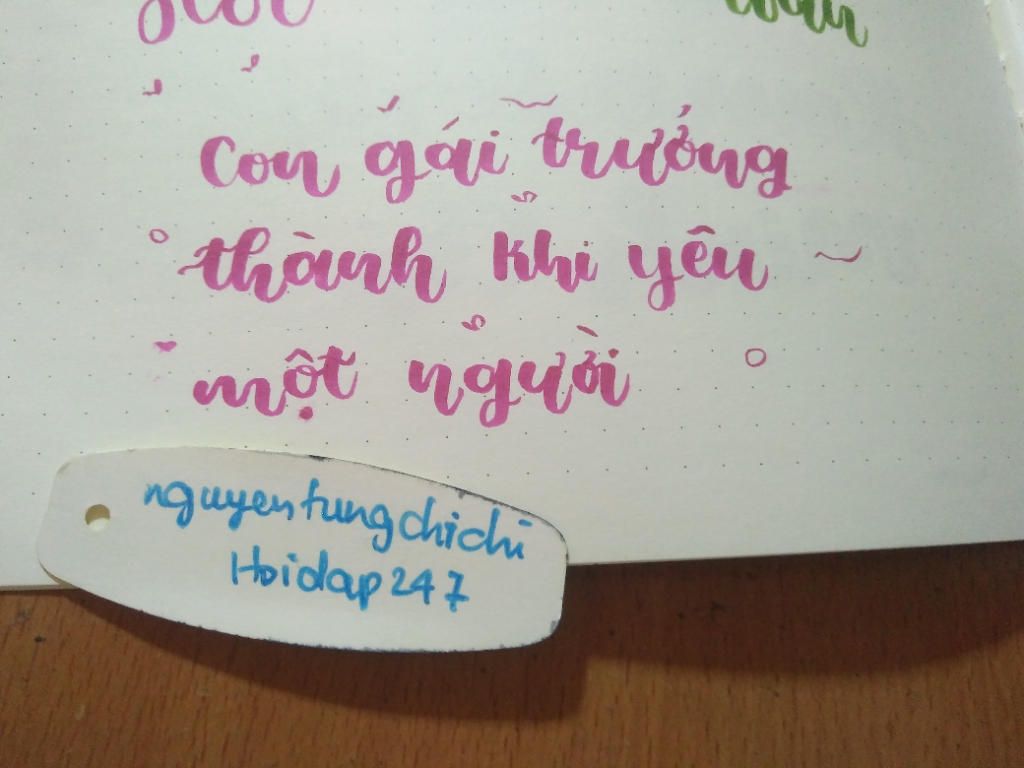 Con gái trưởng
thành khi yêu
một người
nguyentungchichi
Hoidap247